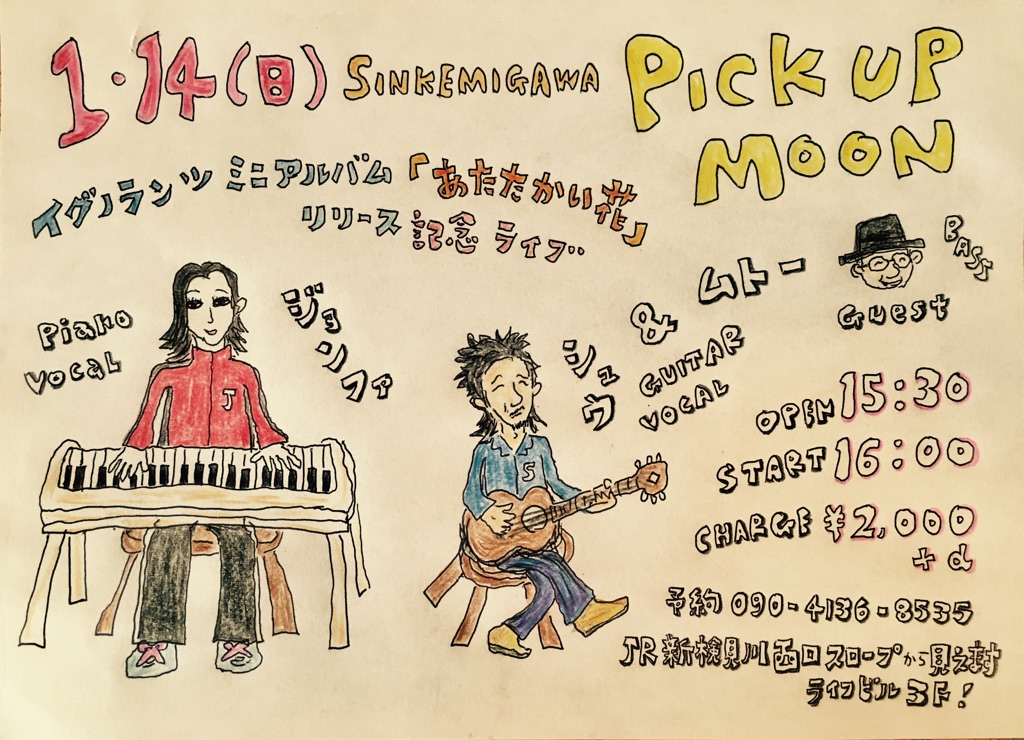 1・14(日) SINKEMIGAWA PICK UP MOON
イグノランツ ミニアルバム「あたたかい花」
リリース 記念 ライブ
Piano
Vocal
ジョンファ
J
シュウ
GUITAR
VOCAL
S
& ムトー
BASS
Guest
OPEN 15:30
START 16:00
CHARGE ¥2,000
+d
予約 090-4136-8535
JR新検見川西口スロープから見え対
ライフビル 3F!